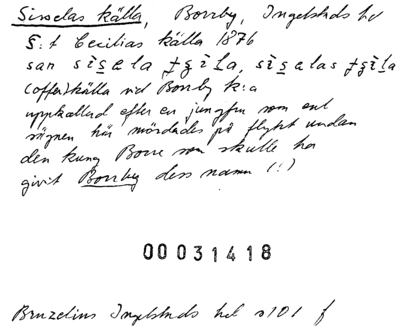 Sisselas källa, Borrby, Ingelstads hd
S:t Cecilias källa 1876
san sisela , siselas
(offer)källa vid Borrby k:a
uppkallad efter en jungfru som enl
sägnen här mördades på flykt undan
den kung Borre som skulle ha
givit Borrby dess namn (!)
00031418
Bruzelius Ingelstads hd s 101 f